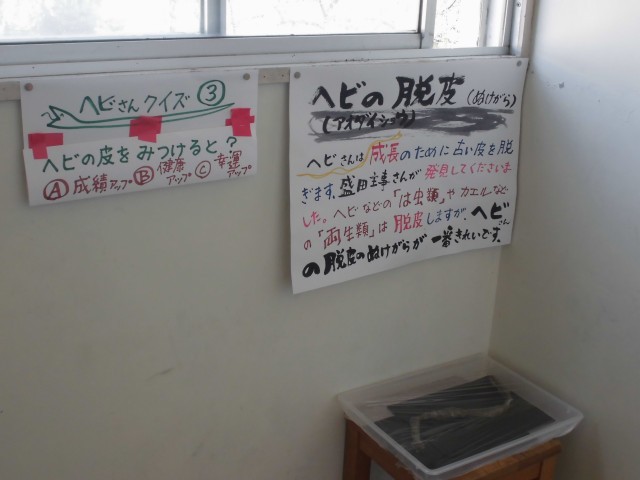 ヘビさんクイズ③
ヘビの皮をみつけると?
Ⓐ成績アップ Ⓑ健康アップ Ⓒ幸運アップ
ヘビの脱皮(ぬけがら)
(アオダイショウ)
ヘビさんは成長のために古い皮を脱
ぎます。盛田主事さんが発見してくださいま
した。ヘビなどの「は虫類」やカエルなど
の「両生類」は脱皮しますが、ヘビさん
の脱皮のぬけがらが一番きれいです。